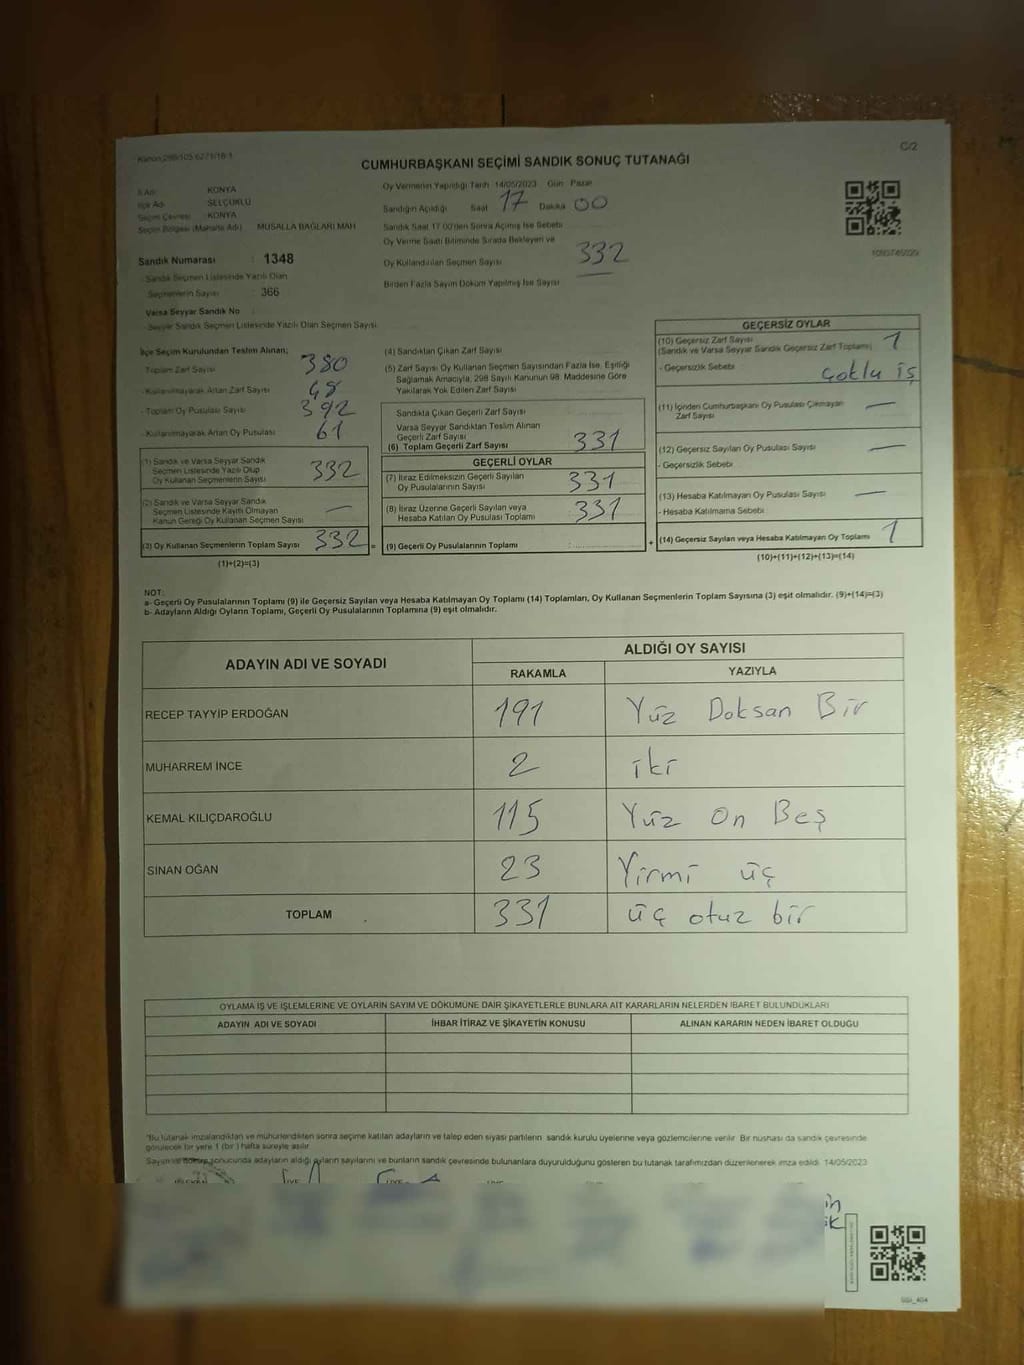 Kanon 298/105 6271/18-1
C/2
CUMHURBAŞKANI SEÇİMİ SANDIK SONUÇ TUTANAĞI
İl Adı : KONYA
İlçe Adı : SELÇUKLU
Seçim Çevresi : KONYA
Seçim Bölgesi (Mahalle Adı) MUSALLA BAĞLARI MAH
Sandık Numarası : 1348
- Sandık Seçmen Listesinde Yazılı Olan
Seçmenlerin Sayısı : 366
Varsa Seyyar Sandık No :
- Seyyar Sandık Seçmen Listesinde Yazılı Olan Seçmen Sayısı
Oy Vermenin Yapıldığı Tarih 14/05/2023 Gün Pazar
Sandığın Açıldığı Saat 17 Dakika 00
Sandık Saat 17.00'den Sonra Açılmış İse Sebebi
Oy Verme Saati Bitiminde Sırada Bekleyen ve
Oy Kullandırılan Seçmen Sayısı 332
Birden Fazla Sayım Döküm Yapılmış İse Sayısı
İlçe Seçim Kurulundan Teslim Alınan;
Toplam Zarf Sayısı 380
- Kullanılmayarak Artan Zarf Sayısı 48
- Toplam Oy Pusulası Sayısı 392
- Kullanılmayarak Artan Oy Pusulası 61
(1) Sandık ve Varsa Seyyar Sandık
Seçmen Listesinde Yazılı Olup
Oy Kullanan Seçmenlerin Sayısı 332
(2) Sandık ve Varsa Seyyar Sandık
Seçmen Listesinde Kayıtlı Olmayan
Kanun Gereği Oy Kullanan Seçmen Sayısı —
(3) Oy Kullanan Seçmenlerin Toplam Sayısı 332 =
(1)+(2)=(3)
(4) Sandıktan Çıkan Zarf Sayısı
(5) Zarf Sayısı Oy Kullanan Seçmen Sayısından Fazla İse, Eşitliği
Sağlamak Amacıyla, 298 Sayılı Kanunun 98. Maddesine Göre
Yakılarak Yok Edilen Zarf Sayısı
Sandıkta Çıkan Geçerli Zarf Sayısı
Varsa Seyyar Sandıktan Teslim Alınan
Geçerli Zarf Sayısı
(6) Toplam Geçerli Zarf Sayısı 331
GEÇERLİ OYLAR
(7) İtiraz Edilmeksizin Geçerli Sayılan
Oy Pusulalarının Sayısı 331
(8) İtiraz Üzerine Geçerli Sayılan veya
Hesaba Katılan Oy Pusulası Toplamı 331
(9) Geçerli Oy Pusulalarının Toplamı +
GEÇERSİZ OYLAR
(10) Geçersiz Zarf Sayısı
(Sandık ve Varsa Seyyar Sandık Geçersiz Zarf Toplamı) 1
- Geçersizlik Sebebi çoklu iş
(11) İçinden Cumhurbaşkanı Oy Pusulası Çıkmayan
Zarf Sayısı —
(12) Geçersiz Sayılan Oy Pusulası Sayısı —
- Geçersizlik Sebebi
(13) Hesaba Katılmayan Oy Pusulası Sayısı —
- Hesaba Katılmama Sebebi
(14) Geçersiz Sayılan veya Hesaba Katılmayan Oy Toplamı 1
(10)+(11)+(12)+(13)=(14)
NOT:
a- Geçerli Oy Pusulalarının Toplamı (9) ile Geçersiz Sayılan veya Hesaba Katılmayan Oy Toplamı (14) Toplamları, Oy Kullanan Seçmenlerin Toplam Sayısına (3) eşit olmalıdır. (9)+(14)=(3)
b- Adayların Aldığı Oyların Toplamı, Geçerli Oy Pusulalarının Toplamına (9) eşit olmalıdır.
ADAYIN ADI VE SOYADI
ALDIĞI OY SAYISI
RAKAMLA YAZIYLA
RECEP TAYYİP ERDOĞAN 191 Yüz Doksan Bir
MUHARREM İNCE 2 iki
KEMAL KILIÇDAROĞLU 115 Yüz On Beş
SİNAN OĞAN 23 Yirmi üç
TOPLAM 331 üç otuz bir
OYLAMA İŞ VE İŞLEMLERİNE VE OYLARIN SAYIM VE DÖKÜMÜNE DAİR ŞİKAYETLERLE BUNLARA AİT KARARLARIN NELERDEN İBARET BULUNDUKLARI
ADAYIN ADI VE SOYADI İHBAR İTİRAZ VE ŞİKAYETİN KONUSU ALINAN KARARIN NEDEN İBARET OLDUĞU
*Bu tutanak imzalandıktan ve mühürlendikten sonra seçime katılan adayların ve talep eden siyasi partilerin sandık kurulu üyelerine veya gözlemcilerine verilir. Bir nüshası da sandık çevresinde
görülecek bir yere 1 (bir) hafta süreyle asılır.
Sayım ve döküm sonucunda adayların aldığı oyların sayılarını ve bunların sandık çevresinde bulunanlara duyurulduğunu gösteren bu tutanak tarafımızdan düzenlenerek imza edildi. 14/05/2023